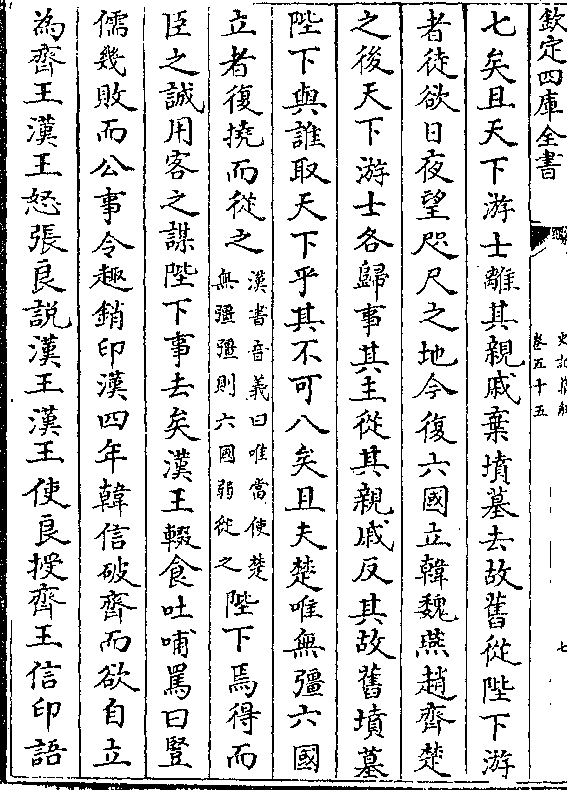 欽定四庫全書
史記集解
卷五十五
七
七矣且天下游士離其親戚棄墳墓去故舊從陛下游
者徒欲日夜望咫尺之地今復六國立韓魏燕趙齊楚
之後天下游士各歸事其主從其親戚反其故舊墳墓
陛下與誰取天下乎其不可八矣且夫楚唯無彊六國
立者復撓而從之漢書音義曰唯當使楚無彊彊則六國弱從之陛下焉得而
臣之誠用客之謀陛下事去矣漢王輟食吐哺罵曰豎
儒幾敗而公事令趣銷印漢四年韓信破齊而欲自立
為齊王漢王怒張良説漢王漢王使良授齊王信印語